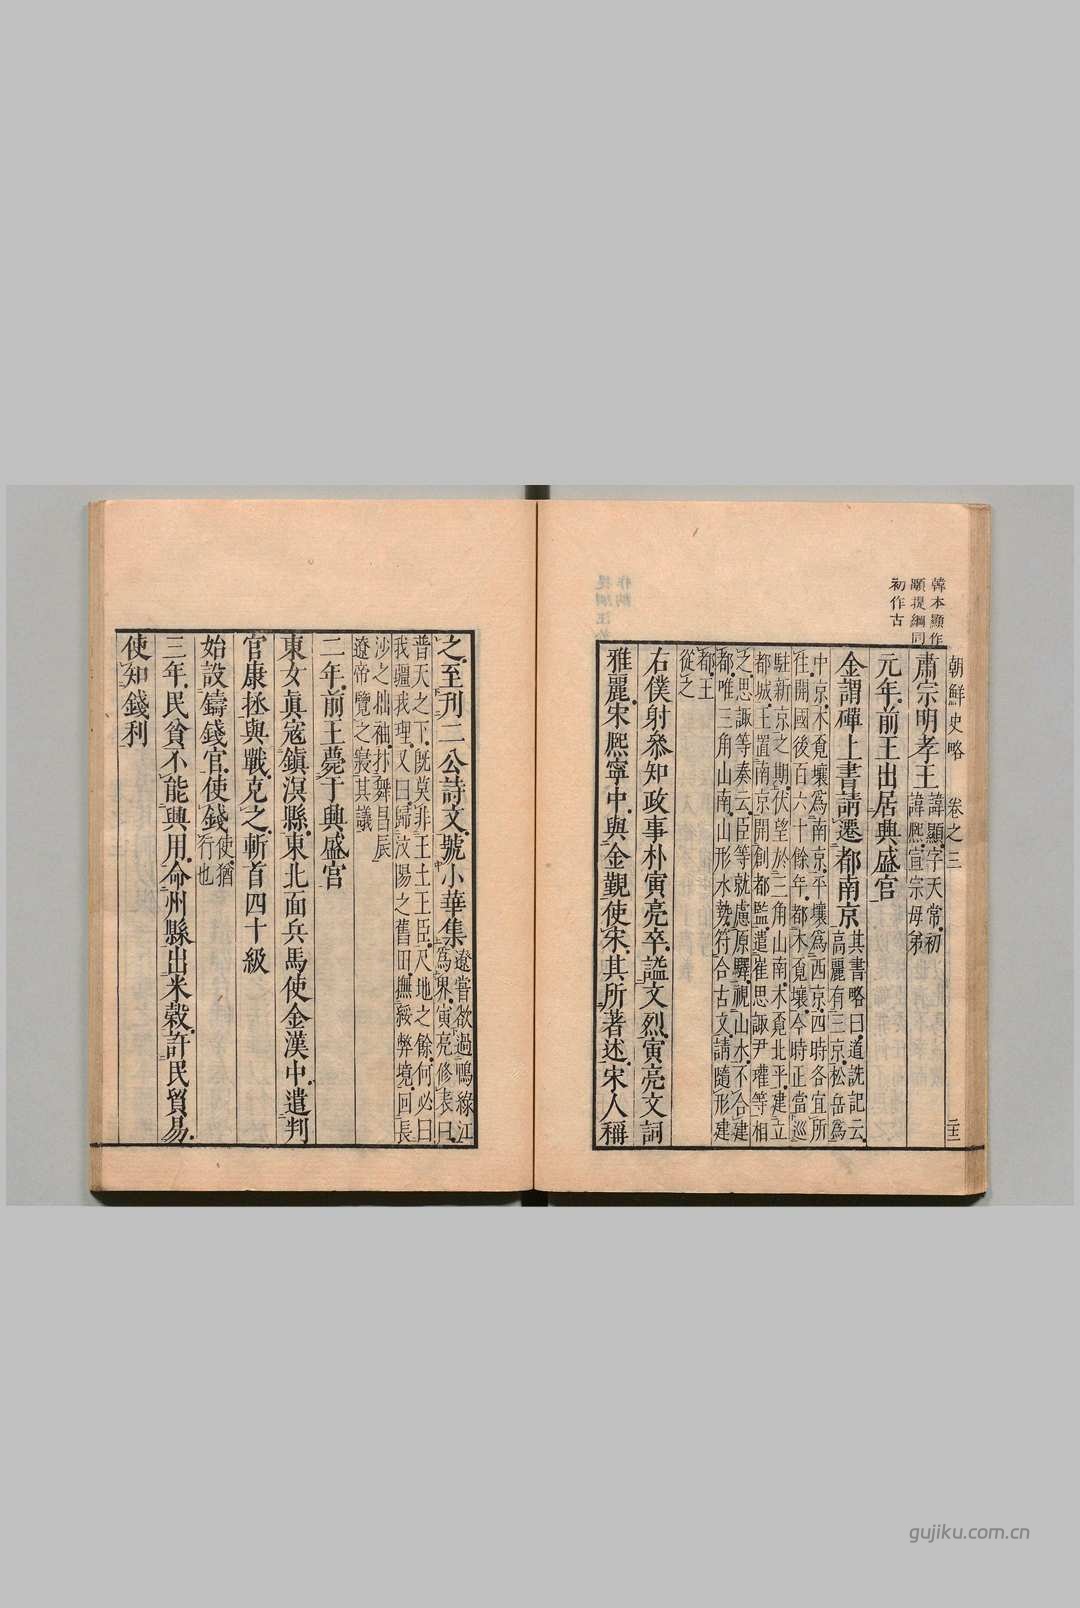 韓本顯作
顒提綱同
初作古
朝鮮史略 卷之三 二十二
肅宗明孝王諱顒字天常初
諱熙宣宗母弟
元年前王出居興盛宮
金謂磾上書請遷都南京其書略曰道詵記云
高麗有三京松岳為
中京木覓壤為南京平壤為西京四時各宜所
住開國後百六十餘年都木覓壤今時正當巡
駐新京之期伏望於三角山南木覓北平建立
都城王置南京開創都監遣崔思諏尹瓘等相
之思諏等奏云臣等就慮原驛視山水不合建
都唯三角山南山形水勢符合古文請隨形建
都王
從之
右僕射叅知政事朴寅亮卒謚文烈寅亮文詞
雅麗宋熙寧中與金覲使宋其所著述宋人稱
之至刊二公詩文號小華集遼嘗欲過鴨綠江
為界寅亮修表曰
普天之下既莫非王土王臣尺地之餘何必曰
我疆我理又曰歸汶陽之舊田撫綏弊境回長
沙之拙袖抃舞昌辰
遼帝覽之寢其議
二年前王薨于興盛宮
東女眞寇鎭溟縣東北面兵馬使金漢中遣判
官康拯與戰克之斬首四十級
始設鑄錢官使錢使猶
行也
三年民貧不能興用命州縣出米穀許民貿易
使知錢利
gujiku.com.cn